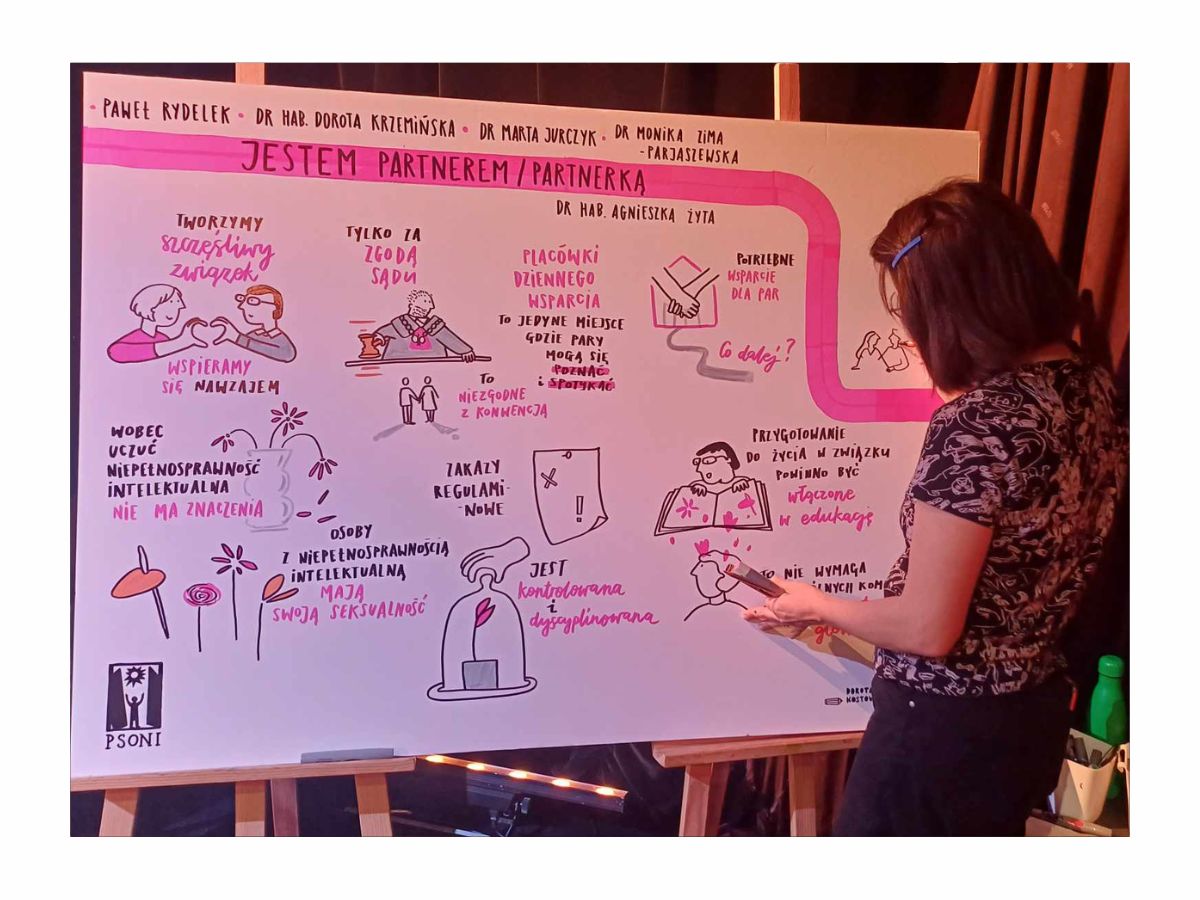 • PAWEŁ RYDELEK • DR HAB. DOROTA KRZEMIŃSKA • DR MARTA JURCZYK • DR MONIKA ZIMA
-PARJASZEWSKA
JESTEM PARTNEREM/PARTNERKĄ
DR HAB. AGNIESZKA ŻYTA
TWORZYMY
szczęśliwy
związek
WSPIERAMY
SIĘ NAWZAJEM
TYLKO ZA
ZGODĄ
SĄDU
TO
NIEZGODNE
Z KONWENCJĄ
PLACÓWKI
DZIENNEGO
WSPARCIA
TO JEDYNE MIEJSCE
GDZIE PARY
MOGĄ SIĘ
POZNAĆ
i SPOTYKAĆ
POTRZEBNE
WSPARCIE
DLA PAR
Co dalej?
WOBEC
UCZUĆ
NIEPEŁNOSPRAWNOŚĆ
INTELEKTUALNA
NIE MA ZNACZENIA
OSOBY
Z NIEPEŁNOSPRAWNOŚCIĄ
INTELEKTUALNĄ
MAJĄ
SWOJĄ SEKSUALNOŚĆ
ZAKAZY
REGULAMI-
-NOWE
!
JEST
kontrolowana
i
dyscyplinowana
PRZYGOTOWANIE
DO ŻYCIA W ZWIĄZKU
POWINNO BYĆ
włączone
w edukację
TO NIE WYMAGA
DOROTA
PSONI